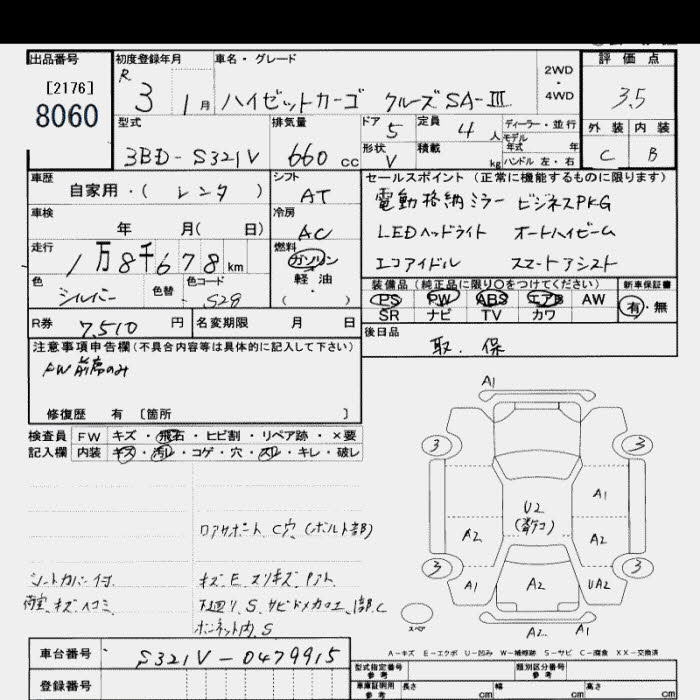 出品番号 初度登録年月 車名・グレード 評価点
[2176]
8060
R 3 1月 ハイゼットカーゴ クルーズSA-Ⅲ 2WD・4WD 3.5
型式 排気量 ドア 5 定員 4 人 ディーラー・並行 外装 内装
3BD-S321V 660 cc 形状 V 積載 kg モデル年式 年 ハンドル 左・右 C B
車歴 シフト セールスポイント (正常に機能するものに限ります)
自家用・( レンタ ) AT 電動格納ミラー ビジネスPKG
車検 冷房
年 月( 日) AC LEDヘッドライト オートハイビーム
走行 燃料
1万8千678km ガソリン エコアイドル スマートアシスト
色 色替 色コード 軽油 装備品 (純正品に限り○をつけてください) 新車保証書
シルバー S29 ( ) PS PW ABS エアB AW 有・無
SR ナビ TV カワ
R券 7,510 円 名変期限 月 日 後日品
注意事項申告欄(不具合内容等は具体的に記入して下さい) 取.保
FW前席のみ
修復歴 有 〔箇所 〕
検査員 FW キズ・飛石・ヒビ割・リペア跡・×要
記入欄 内装 キズ・汚レ・コゲ・穴・スレ・キレ・破レ
A1
3 3
A1
U2
A2 A2
3 3
A1 A2 UA2
スペア A2 A1
ロアサポート C穴 (ボルト部)
シートカバー付
荷室キズヘコミ
下廻リ S サビ
ボンネット内 S
A-キズ E-エクボ U-凹み W-補修跡 S-サビ C-腐食 XX-交換済
車台番号 S321V-0479915
登録番号 型式指定番号 参考 類別区分番号 参考
車庫証明用 参考 長さ cm 幅 cm 高さ cm